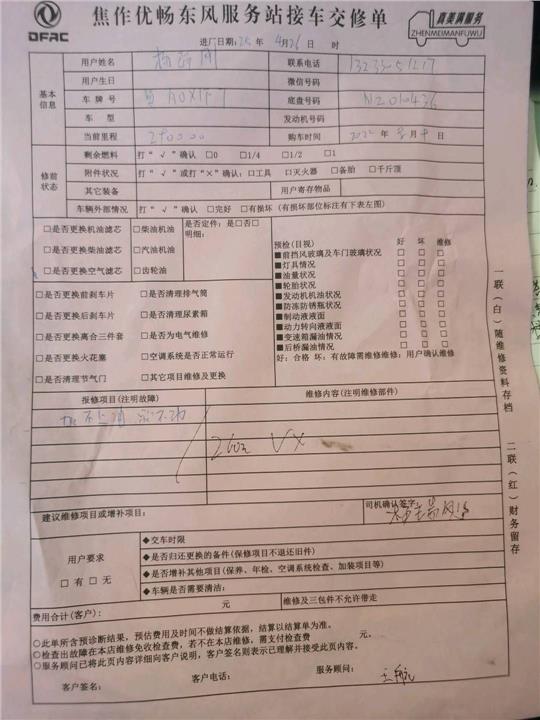 DFAC
焦作优畅东风服务站接车交修单
真美满服务
ZHENMEIMANFUWU
进厂日期:25年 4月26日 时
基本信息
用户姓名
联系电话
用户生日
微信号码
车牌号
底盘号码 N2010436
车型
发动机号码
当前里程 210000
购车时间 2022年 月 日
修前状态
剩余燃料 打“√”确认 □0 □1/4 □1/2 □1
附件状况 打“√”或打“×”确认:□工具 □灭火器 □备胎 □千斤顶
其它装备
用户寄存物品
车辆外部情况 打“√”确认 □完好 □有损坏(有损坏部位标注有下表左图)
□是否更换机油滤芯 □柴油机油
□是否更换柴油滤芯 □汽油机油
□是否更换空气滤芯 □齿轮油
是否定件:是□否□
明细:
□是否更换前刹车片 □是否清理排气筒
□是否更换后刹车片 □是否清理尿素箱
□是否更换离合三件套 □是否为电气维修
□是否更换火花塞 □空调系统是否正常运行
□是否清理节气门 □其它项目维修及更换
预检(目视) 好 坏 维修
■前挡风玻璃及车门玻璃状况 □ □ □
■灯具情况 □ □ □
■油量状况 □ □ □
■轮胎状况 □ □ □
■发动机机油状况 □ □ □
■防冻防锈瓶状况 □ □ □
■制动液液面 □ □ □
■动力转向液液面 □ □ □
■变速箱漏油情况 □ □ □
■后桥漏油情况 □ □ □
好:合格 坏:有故障需维修维修:用户确认维修
报修项目(注明故障)
维修内容(注明维修部件)
建议维修项目或增补项目:
司机确认签字:
用户要求
□有 □无
◆交车时限
◆是否归还更换的备件(保修项目不退还旧件)
◆是否增补其他项目(保养、年检、空调系统检查、加装项目等)
◆车辆是否需要清洁:
费用合计(客户): 元
维修及三包件不允许带走
○此单所含预诊断结果,预估费用及时间不做结算依据,结算以结算单为准。
○检查出故障在本店维修免收检查费,若不在本店维修,需支付检查费 元。
○服务顾问已将此页内容详细向客户说明,客户签名则表示已理解并接受此页内容。
客户签名: 客户电话: 服务顾问:
一联(白)随维修资料存档
二联(红)财务留存